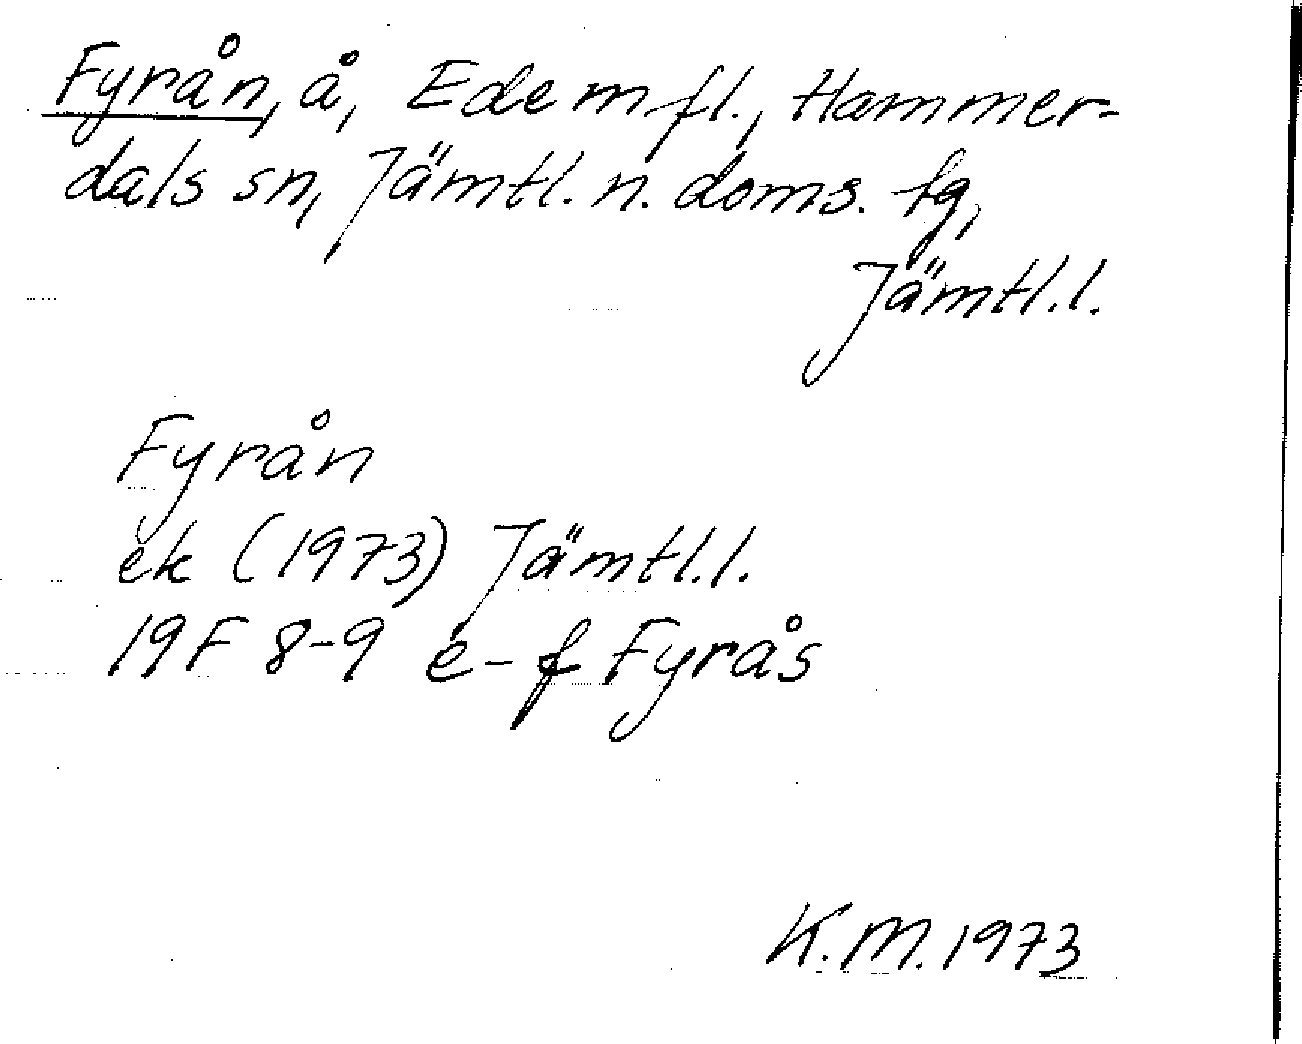 Fyrån, å, Ede m fl., Hammer-
dals sn, Jämtl. n. doms. tg,
Jämtl.l.
Fyrån
ek (1973) Jämtl.l.
19F 8-9 e-f Fyrås
K.M. 1973